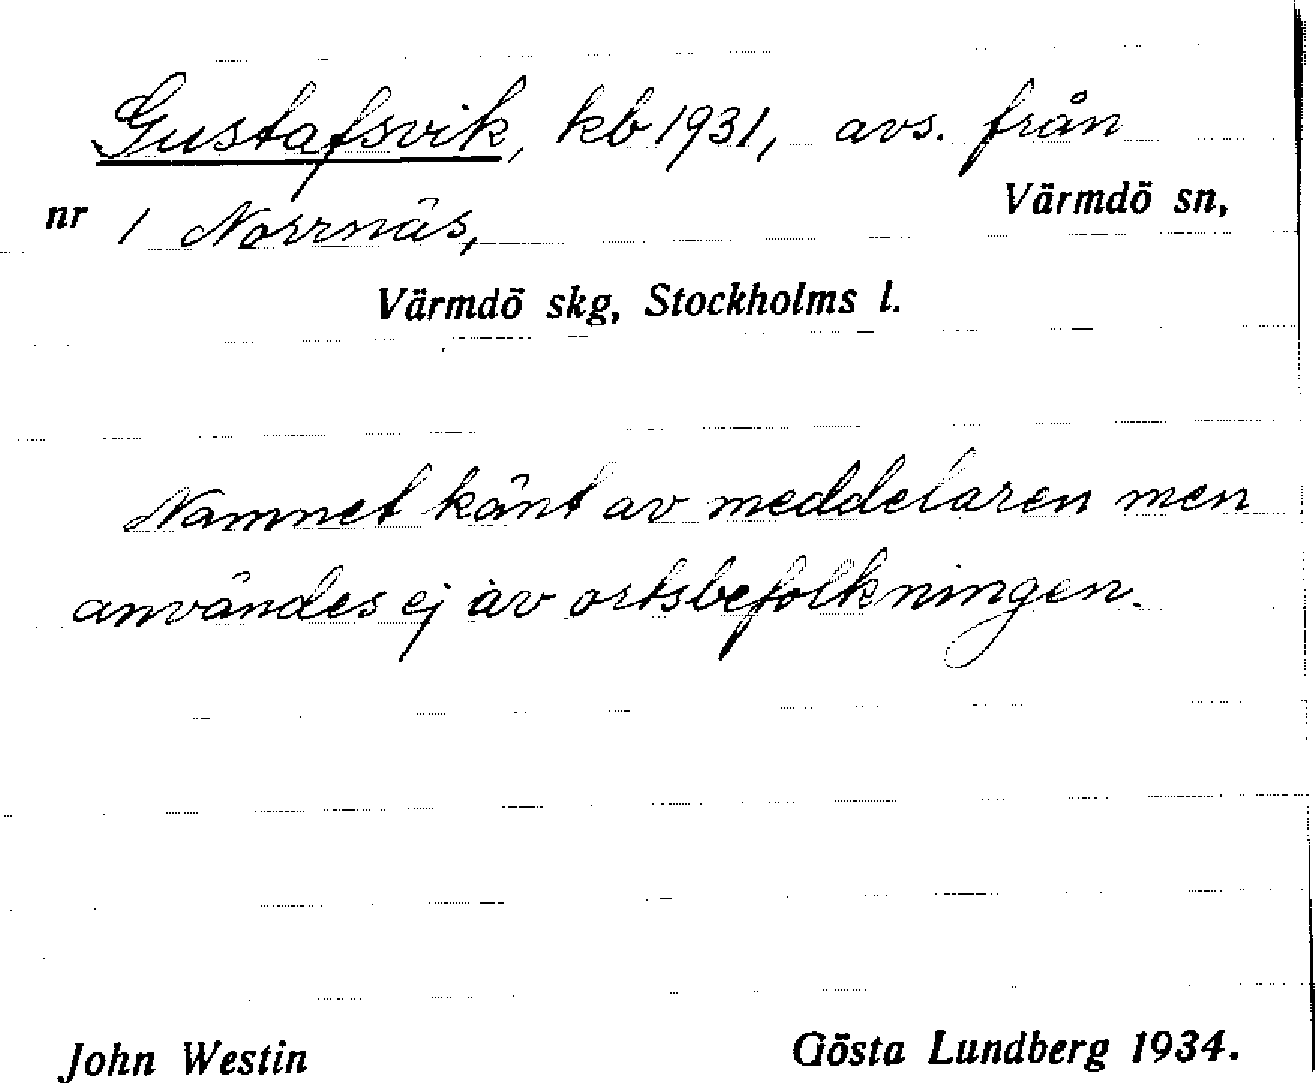 Gustafsvik, kb 1931, avs. från
nr 1 Norrnäs, Värmdö sn,
Värmdö skg, Stockholms l.
Namnet känt av meddelaren men
användes ej av ortsbefolkningen.
John Westin Gösta Lundberg 1934.